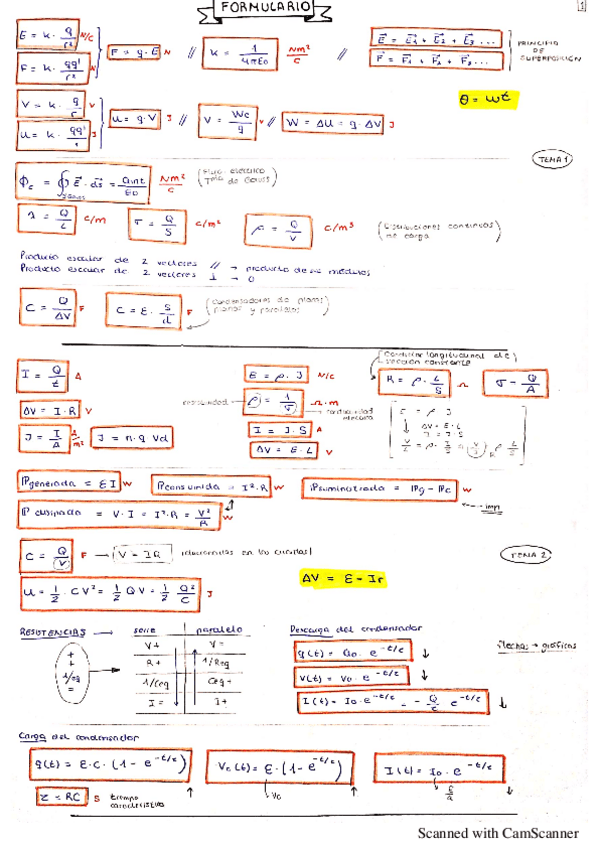 FORMULARIO
1
E = k · q/r² N/C
F = k · qq'/r² N
F = q · E N // K = 1/4πε0 Nm²/C //
E⃗ = E⃗1 + E⃗2 + E⃗3 ...
F⃗ = F⃗1 + F⃗2 + F⃗3 ...
PRINCIPIO DE SUPERPOSICIÓN
θ = ωt
V = k · q/r V
U = k · qq'/r J
U = q · V J // V = We/q V // W = ΔU = q · ΔV J
TEMA 1
Φe = ∮ E⃗ · ds⃗ = Qint/ε0 Nm²/C (Flujo eléctrico Tma de Gauss)
λ = Q/L C/m σ = Q/S C/m² ρ = Q/V C/m³ (Distribuciones continuas de carga)
Producto escalar de 2 vectores // → producto de sus módulos
Producto escalar de 2 vectores ⊥ → 0
C = Q/ΔV F C = ε · S/d F (Condensadores de placas planas y paralelas)
I = Q/t A E = ρ · J N/C R = ρ · L/S Ω σ = Q/A
ΔV = I · R V resistividad ρ = 1/σ Ω · m conductividad
J = I/A A/m² J = n · q · Vd I = J · S A
ΔV = E · L V
E = ρ · J
ΔV = E · L
I = J · S
Pgenerada = εI W Pconsumida = I² · R W Psuministrada = Pg - Pc W
imp
P disipada = V · I = I² · R = V²/R W
C = Q/V F → V = IR relacionadas en los circuitos!
TEMA 2
U = 1/2 · CV² = 1/2 QV = 1/2 Q²/C J
ΔV = ε - Ir
RESISTENCIAS → serie paralelo
V+ V=
R+ 1/Req
1/Ceq Ceq+
I= I+
Descarga del condensador
q(t) = Q0 · e^-t/τ ↓
V(t) = V0 · e^-t/τ ↓
I(t) = I0 · e^-t/τ = - Q/τ e^-t/τ ↓
flechas → gráficas
Carga del condensador
q(t) = ε · C · (1 - e^-t/τ) ↑ Vc(t) = ε · (1 - e^-t/τ) ↑ I(t) = I0 · e^-t/τ ↓
V0
ε/R
τ = RC s tiempo característico
Scanned with CamScanner